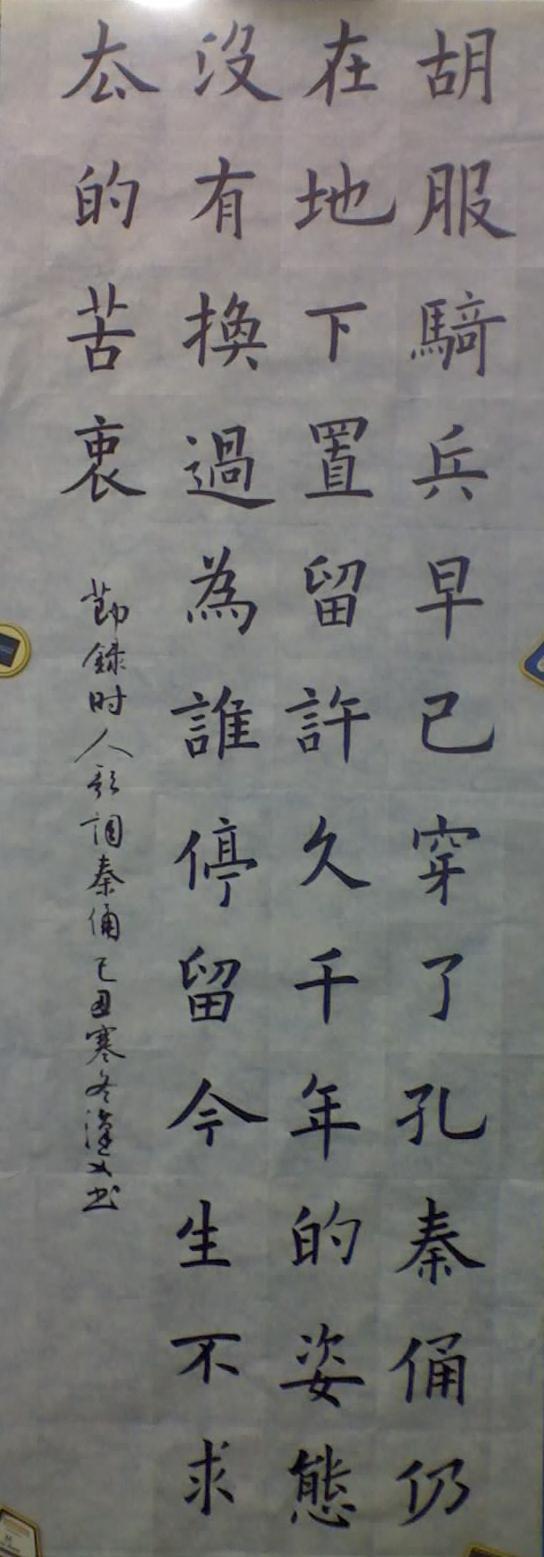 胡服騎兵早已穿了孔秦俑仍
在地下置留許久千年的姿態
沒有換過為誰停留今生不求
厷的苦衷
勤録时人歌词秦俑己丑寒冬漢文书